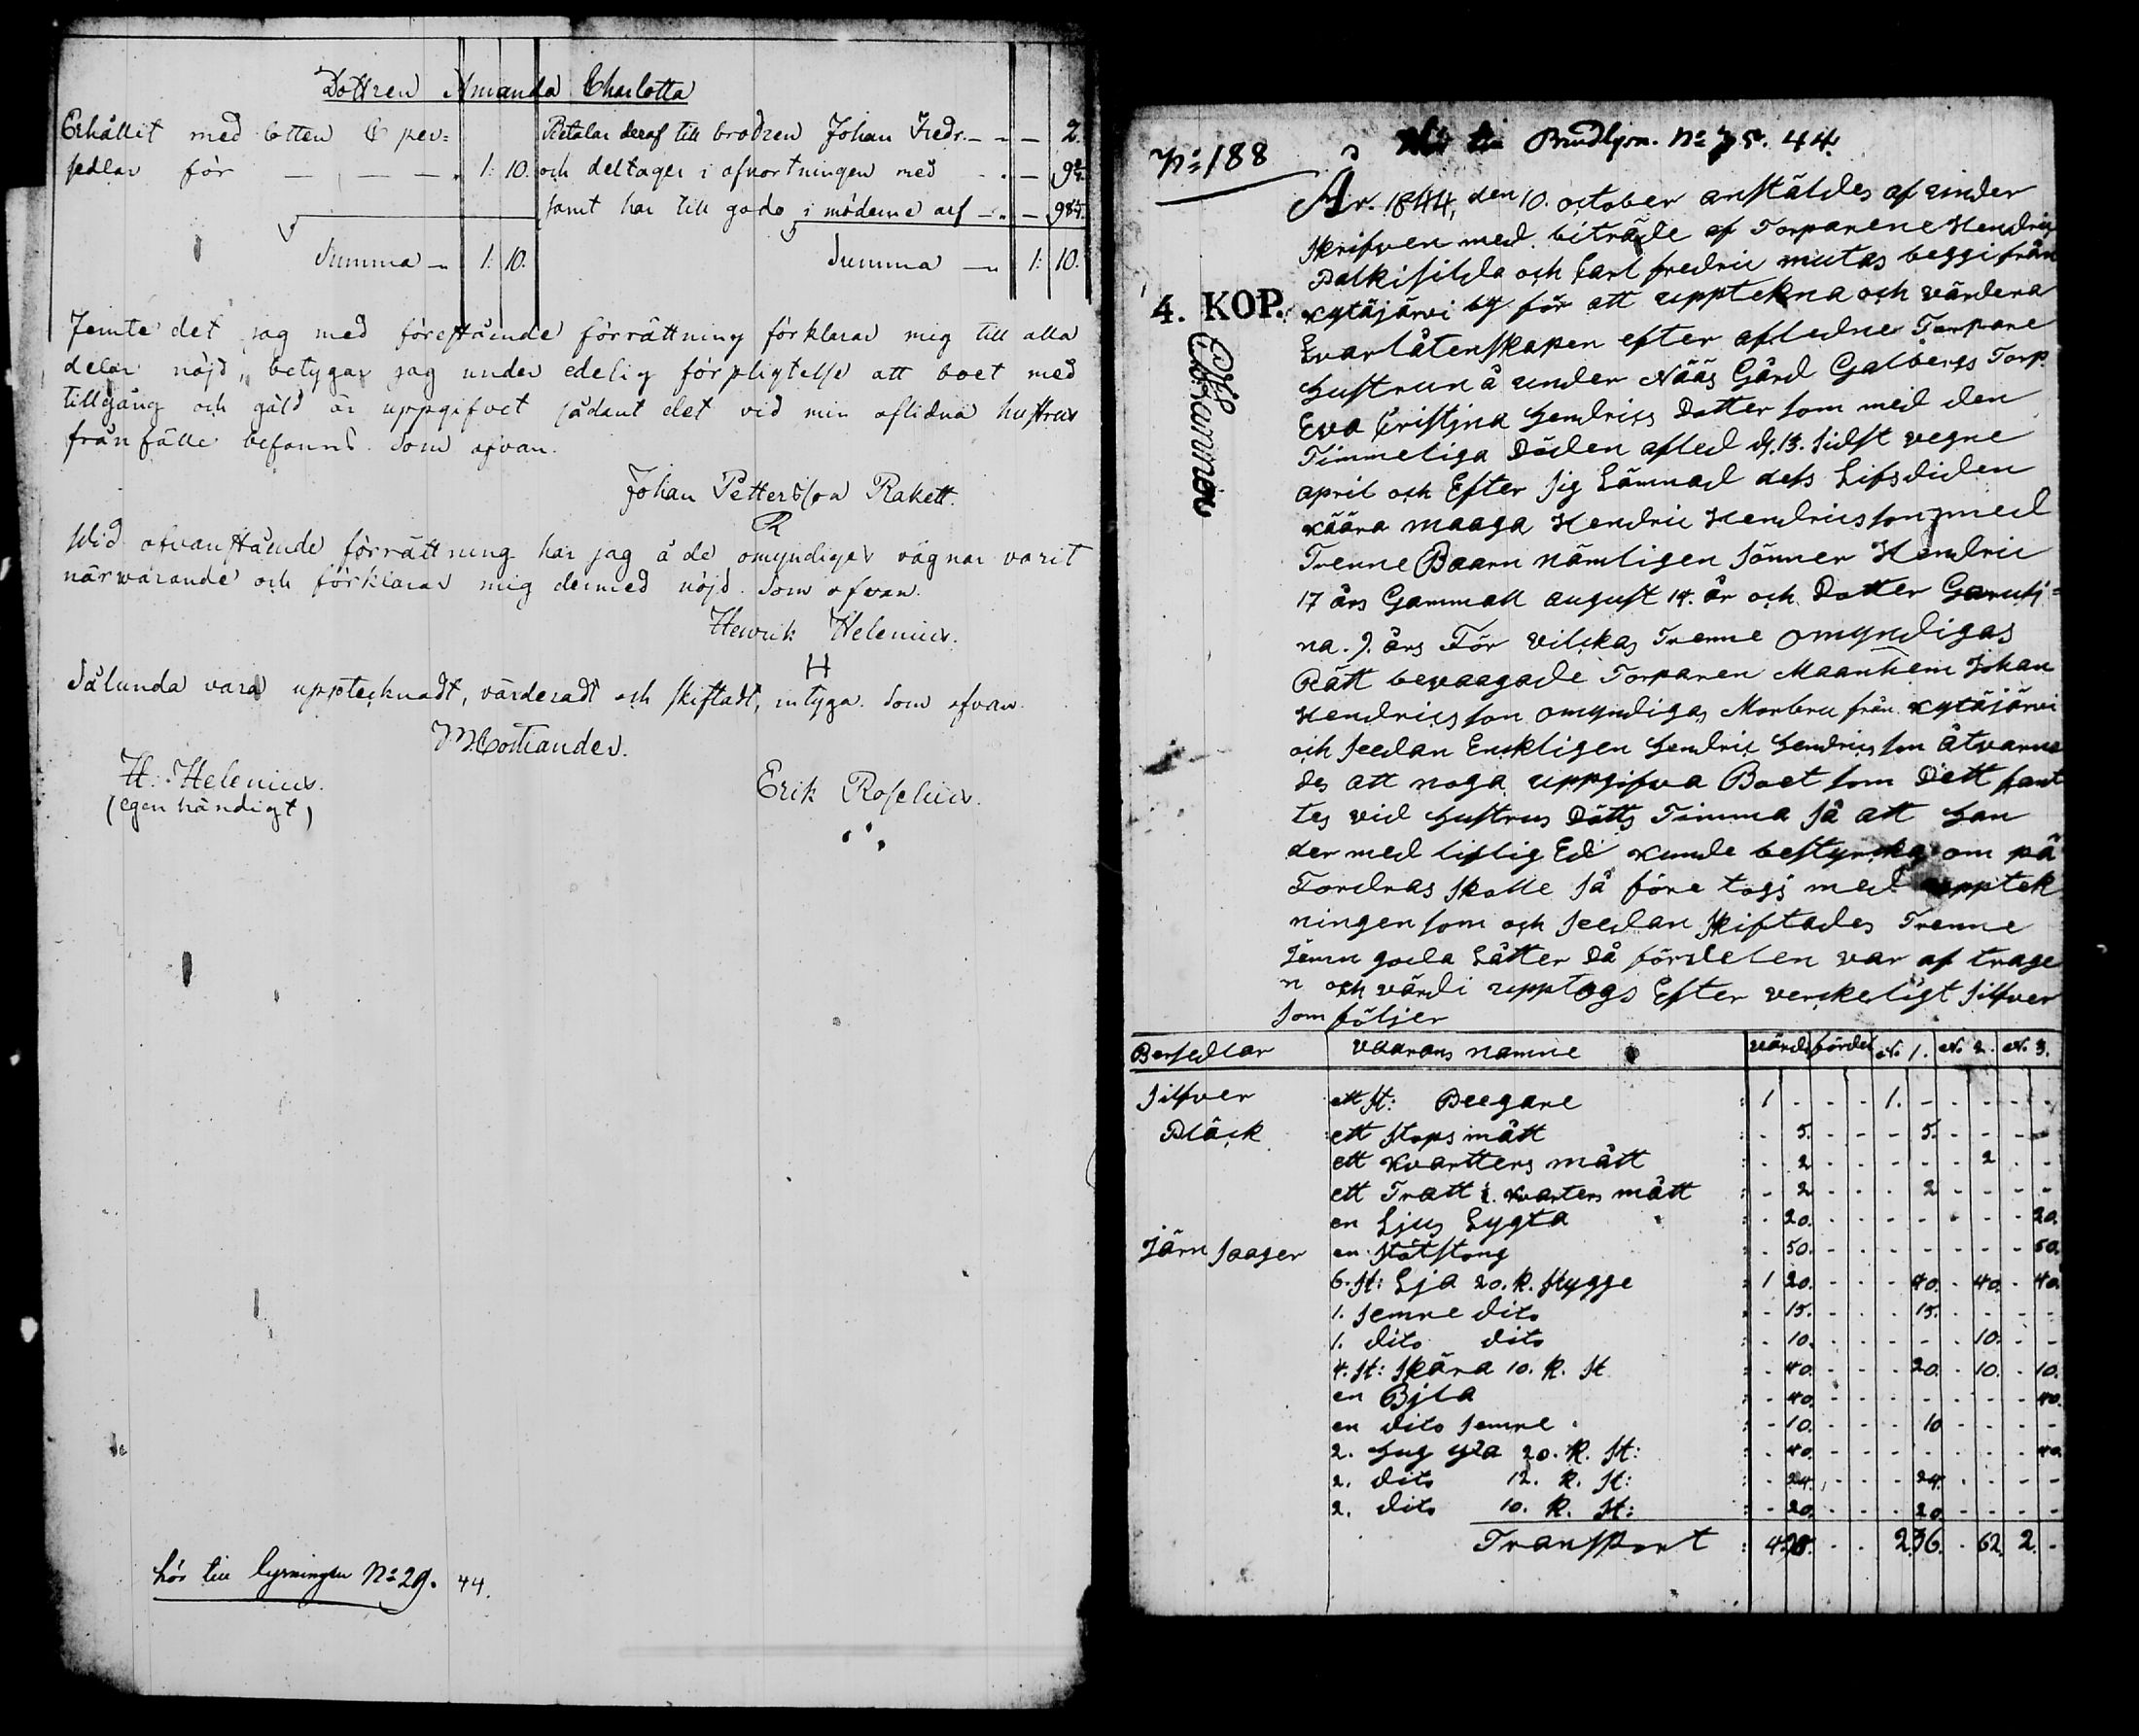 Dottren Amanda Charlotta
Erhållit med lotten C per=
sedlar för — — — „ 1: 10.
Betalar deraf till brodren Johan Fredr. — „ — 2.
och deltager i afkortningen med — „ —
samt har till godo i möderne arf — „ — 98½.
Summa — „ 1: 10. Summa — „ 1: 10.
Jemte det jag med förestående förrättning förklarar mig till alla
delar nöjd, betygar jag under edelig förpligtelse att boet med
tillgång och gäld är uppgifvet sådant det vid min aflidna hustrus
frånfälle befanns. Som ofvan.
Johan Pettersson Rakett.
R
Wid ofvanstående förrättning har jag å de omyndiges vägnar varit
närwarande och förklarar mig dermed nöjd. Som ofvan.
Henrik Helenius.
H
Sålunda vara upptecknadt, värderadt och skiftadt, intyga. Som ofvan.
H. Helenius.
(egen händigt)
Erik Roselius.
hör till lysningen No 29. 44.
No 188
No 75. 44.
4. KOP.
År. 1844, den 10. october anstäldes af under
skrifven med biträde af Torparene Hendric
Palkisilda och Carl fredric mutas beggi från
Kytäjärvi by för att upptekna och värdera
Qvarlåtenskapen efter afledne Torpare
Hustrun å under Nääs Gård Galbergs Torp.
Eva Cristina Hendrics Dotter som med den
Timmeliga Döden afled d. 13. sidst vegne
april och Efter sig Lämnad dess Lifsdiden
Käära maaga Hendric Hendricsson med
Trenne Baarn nämligen sönner Hendric
17 års Gammall august 14. år och Dotter
na. 9. års För vilckas Trenne omyndigas
Rätt bevaagade Torparen Maanheim Johan
Hendricsson omyndigas Morbru från Kytäjärvi
och seedan Enckligen Hendric Hendricsson åtvarna
des att noga uppgifva Boet som Dett fant
tes vid Hustrus Dötts Timma så att Han
der med liflig Ed kunde bestyrcka om på
Fordras skulle så före togs med upptek
ningen som och seedan skiftades Trenne
Jämn goda Låtter Då fördelen var af trage
n och värdi upptogs Efter verckeligt silfver
som följer
Persedlar Vaarans namne värdi fördel No 1. No 2. No 3.
Silfver ett st: Beegare : 1 - - - 1. - - - - -
Bläck ett stops mått : - 5. - - - 5. - - - -
ett Kvartters mått : - 2 - - - - - 2 - -
ett Tratt ½. Kvarters mått : - 2 - - - 2 - - - -
en Ljus Lygta : - 20. - - - - - - - 20.
Järn saager en stötstong : - 50. - - - - - - - 50.
6. st: Lja 20. K. stygge : 1 20. - - - 40. - 40. - 40.
1. semre dito - 15. - - - 15. - - - -
1. dito dito : - 10. - - - - - 10. - -
4. st: skära 10. K. st : - 40. - - - 20. - 10. - 10.
en Bjla : - 40. - - - - - - - 40.
en dito semre : - 10. - - - 10 - - - -
2. Hug yxa 20. K. st: : - 40. - - - - - - - 40.
2. dito 12. K. st: : - 24. - - - 24. - - - -
2. dito 10. K. st: : - 20. - - - 20. - - - -
Transport : 4 98. - - 2.36. - 62. 2. -